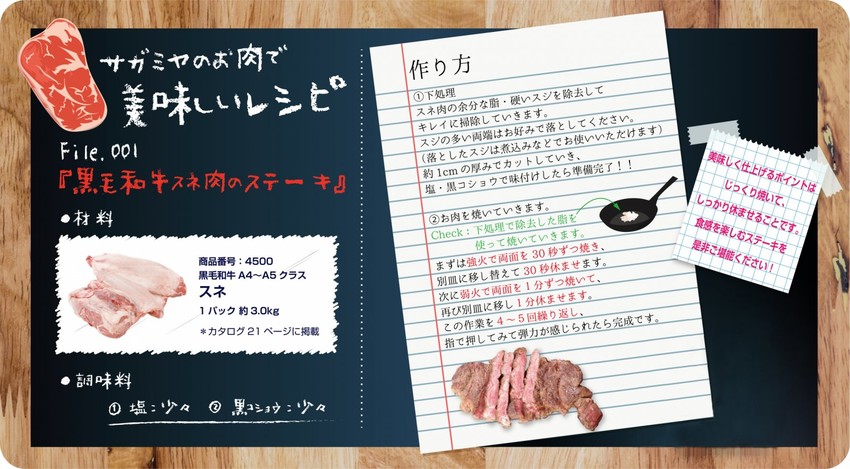 サガミヤのお肉で
美味しいレシピ
File.001
『黒毛和牛スネ肉のステーキ』
●材料
商品番号：4500
黒毛和牛 A4〜A5 クラス
スネ
1パック 約 3.0kg
＊カタログ 21 ページに掲載
●調味料
① 塩：少々 ② 黒コショウ：少々
作り方
①下処理
スネ肉の余分な脂・硬いスジを除去して
キレイに掃除していきます。
スジの多い両端はお好みで落としてください。
（落としたスジは煮込みなどでお使いいただけます）
約 1cm の厚みでカットしていき、
塩・黒コショウで味付けしたら準備完了！！
②お肉を焼いていきます。
Check：下処理で除去した脂を
使って焼いていきます。
まずは強火で両面を 30 秒ずつ焼き、
別皿に移し替えて 30 秒休ませます。
次に弱火で両面を 1 分ずつ焼いて、
再び別皿に移し 1 分休ませます。
この作業を 4 〜 5 回繰り返し、
指で押してみて弾力が感じられたら完成です。
美味しく仕上げるポイントは
じっくり焼いて、
しっかり休ませることです。
食感を楽しむステーキを
是非ご堪能ください！